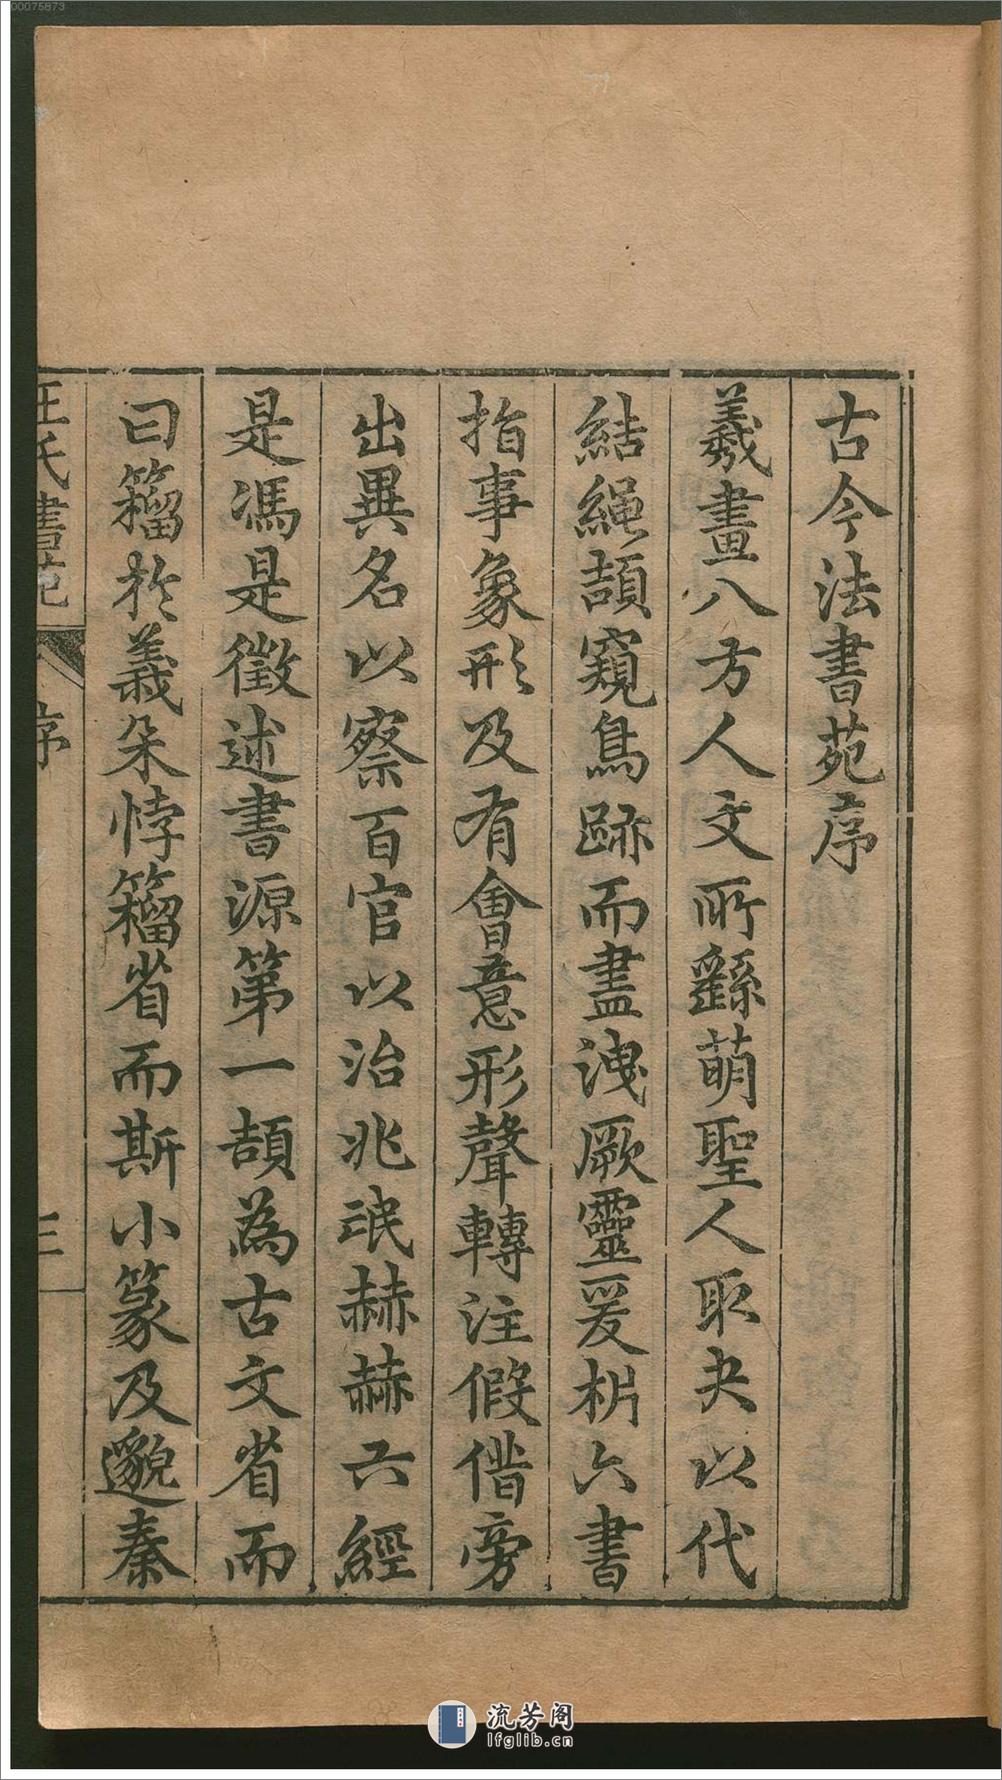 00075873
古今法書苑序
羲畫八方人文所繇萌聖人取夬以代
結繩頡窺鳥跡而盡洩厥靈爰析六書
指事象形及有會意形聲轉注假借旁
出異名以察百官以治兆氓赫赫六經
是馮是徵述書源第一頡為古文省而
曰籀於義朵悖籀省而斯小篆及邈秦
王氏書苑
序
三
流芳阁
lfglib.cn